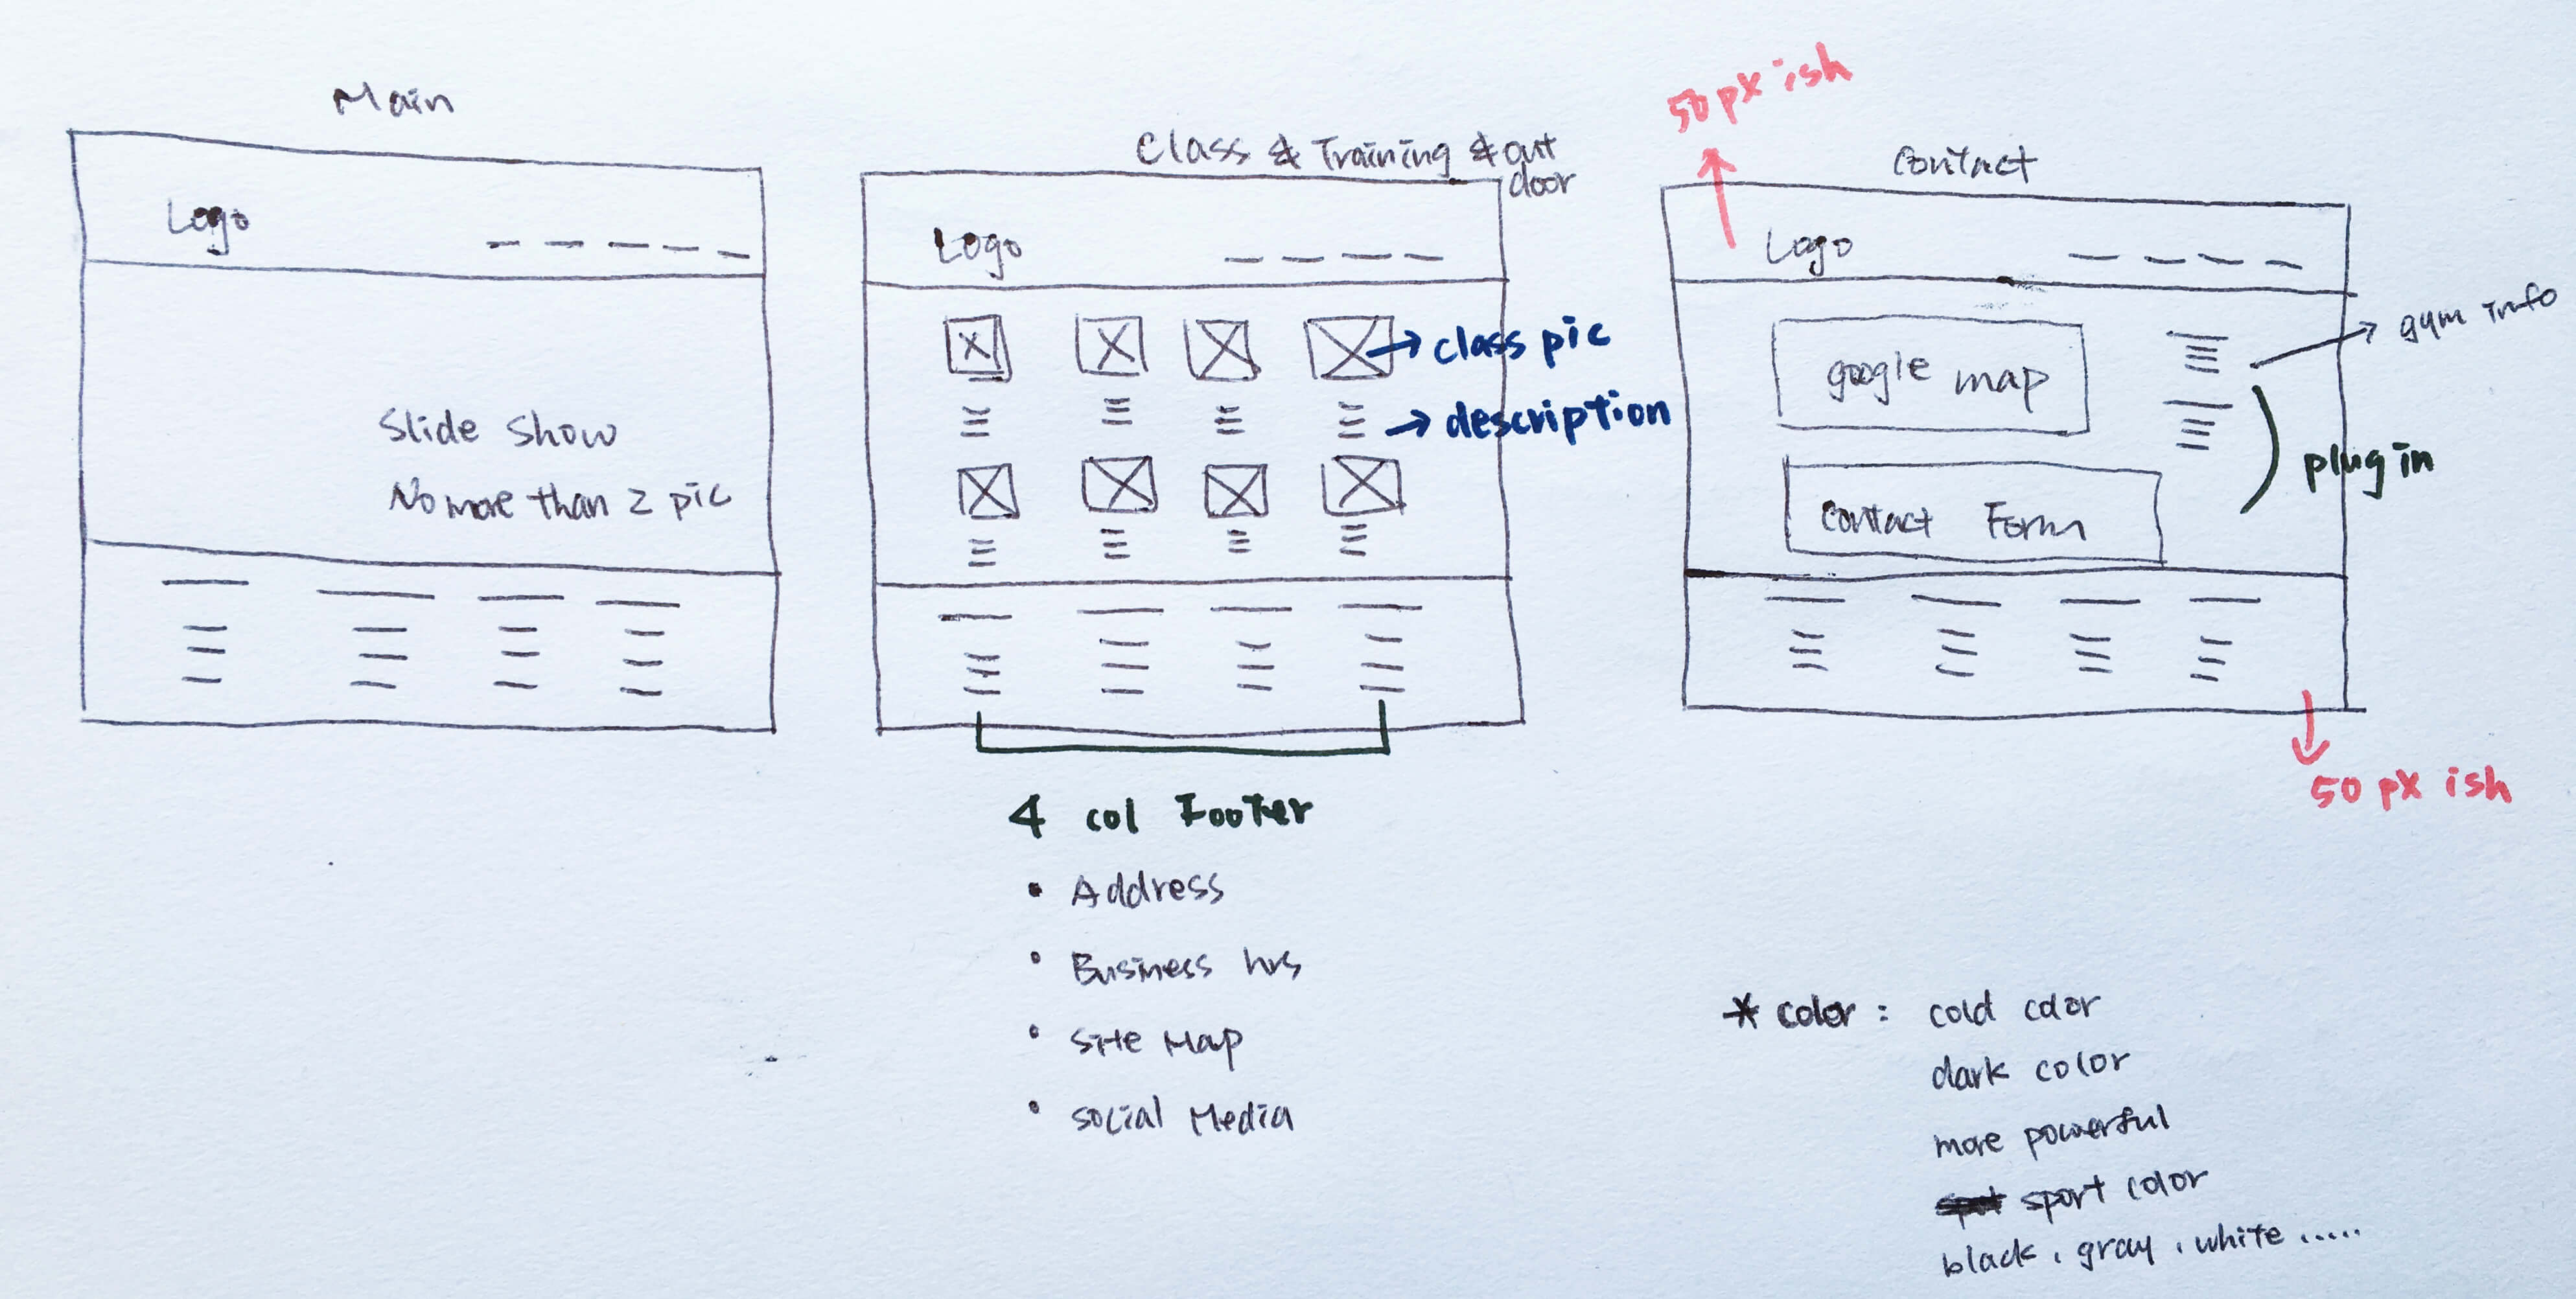 Main
Logo
Slide show
No more than 2 pic
Class & Training & out
door
Logo
class pic
description
4 col Footer
• Address
• Business hrs
• Site Map
• Social Media
50 px ish
Contact
Logo
google map
gym info
plug in
Contact Form
50 px ish
* color : cold color
dark color
more powerful
sport color
black, gray, white .....